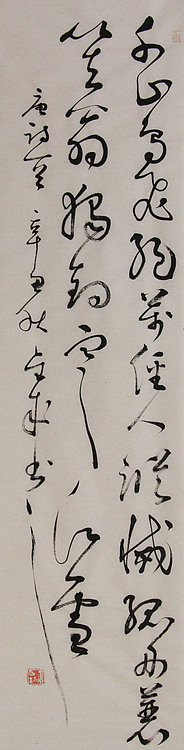 千山鳥飛絕萬徑人蹤滅孤舟蓑
笠翁獨釣寒江雪
唐詩 辛丑秋 書